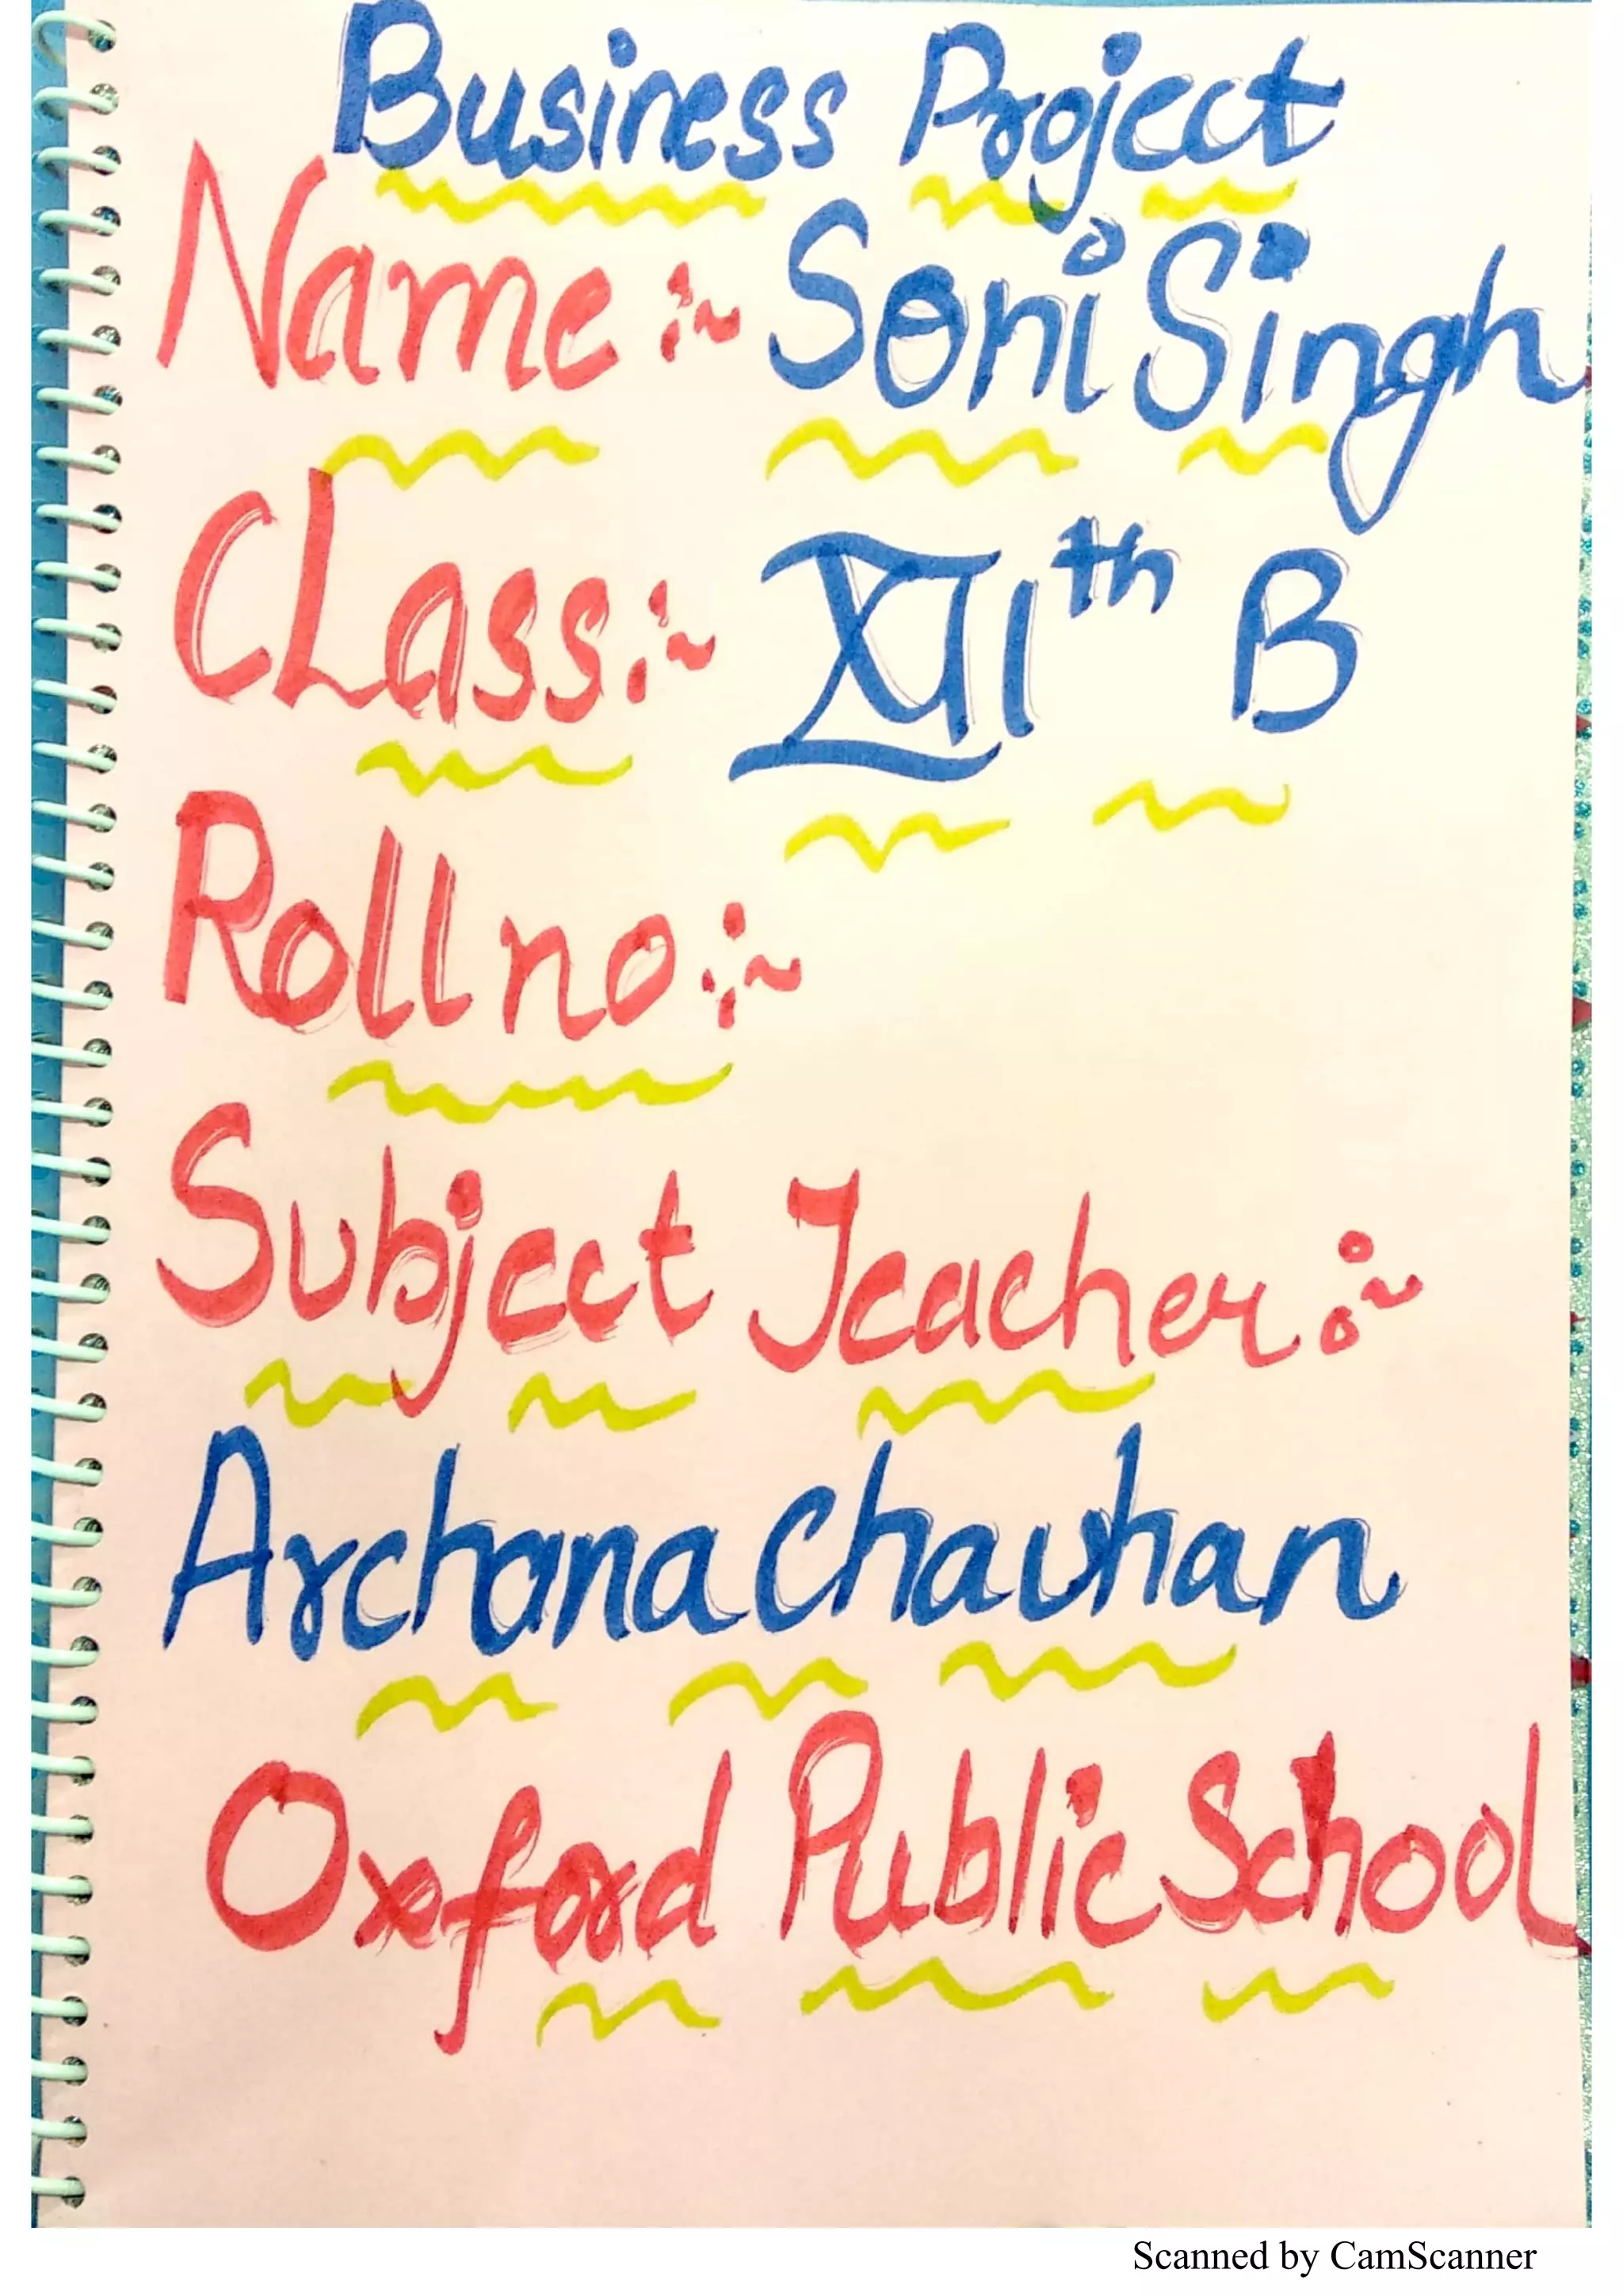 Business Project
Name :~ Soni Singh
CLass :~ XIIth B
Roll no :~
Subject Teacher :~
Archana Chauhan
Oxford Public School
Scanned by CamScanner